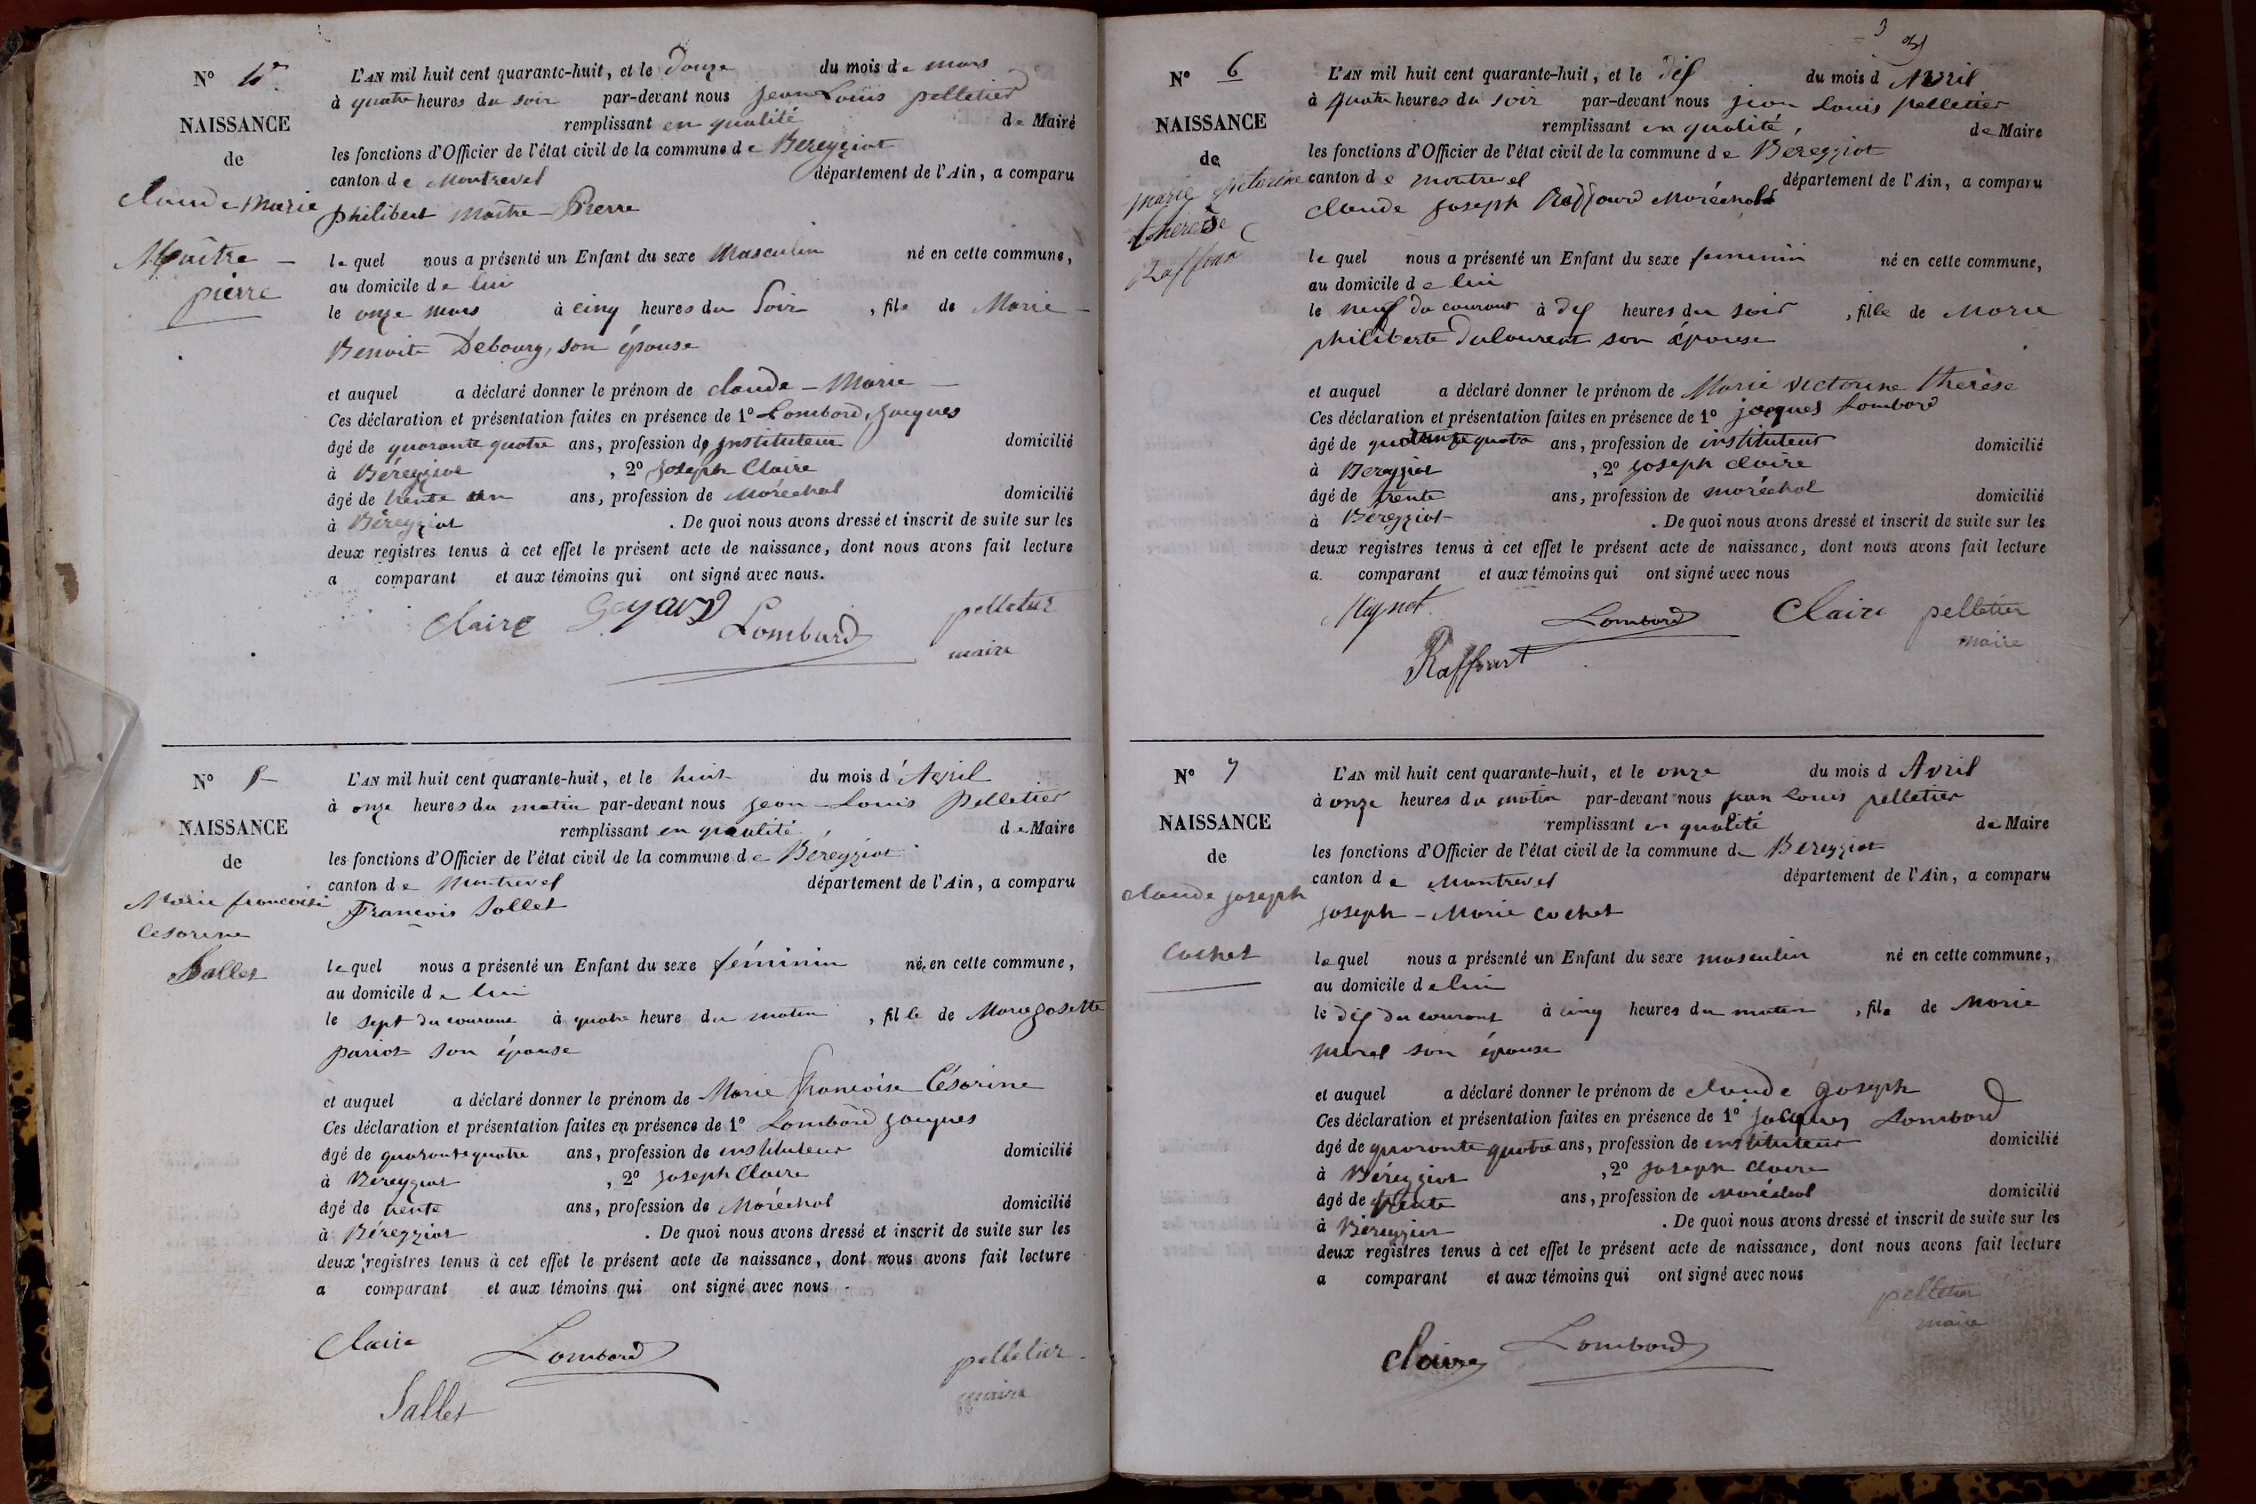 N° 4
NAISSANCE
de
Claude Marie
Maître-
pierre
L'AN mil huit cent quarante-huit, et le douze du mois de mars
à quatre heures du soir par-devant nous jean Louis pelletier
remplissant en qualité de Maire
les fonctions d'Officier de l'état civil de la commune de Bereyziat
canton de Montrevel département de l'Ain, a comparu
philibert Maître-Pierre
lequel nous a présenté un Enfant du sexe Masculin né en cette commune,
au domicile de lui
le onze mars à cinq heures du Soir, fils de Marie
Benoite Debourg, son épouse
et auquel a déclaré donner le prénom de claude-Marie
Ces déclaration et présentation faites en présence de 1° Lombard, jacques
âgé de quarante quatre ans, profession de instituteur domicilié
à Béreyziat, 2° joseph Claire
âgé de trente un ans, profession de Maréchal domicilié
à Béreyziat. De quoi nous avons dressé et inscrit de suite sur les
deux registres tenus à cet effet le présent acte de naissance, dont nous avons fait lecture
a comparant et aux témoins qui ont signé avec nous.
Claire Goyard Lombard pelletier
maire
N° 5
NAISSANCE
de
Marie francoise
Césarine
Sallet
L'AN mil huit cent quarante-huit, et le huit du mois d'Avril
à onze heures du matin par-devant nous jean-Louis Pelletier
remplissant en qualité de Maire
les fonctions d'Officier de l'état civil de la commune de Béreyziat
canton de Montrevel département de l'Ain, a comparu
François Sallet
lequel nous a présenté un Enfant du sexe féminin né en cette commune,
au domicile de lui
le sept du courant à quatre heure du matin, fille de Marie josette
pariot son épouse
et auquel a déclaré donner le prénom de Marie francoise Césarine
Ces déclaration et présentation faites en présence de 1° Lombard jacques
âgé de quarante quatre ans, profession de instituteur domicilié
à Béreyziat, 2° joseph Claire
âgé de trente ans, profession de Maréchal domicilié
à Béreyziat. De quoi nous avons dressé et inscrit de suite sur les
deux registres tenus à cet effet le présent acte de naissance, dont nous avons fait lecture
a comparant et aux témoins qui ont signé avec nous
Claire Lombard pelletier
maire
Sallet
3
N° 6
NAISSANCE
de
marie victorine
thérèse
Raffour
L'AN mil huit cent quarante-huit, et le dix du mois d Avril
à quatre heures du soir par-devant nous jean louis pelletier
remplissant en qualité, de Maire
les fonctions d'Officier de l'état civil de la commune de Bereyziat
canton de montrevel département de l'Ain, a comparu
Claude joseph Raffourd Maréchal
lequel nous a présenté un Enfant du sexe feminin né en cette commune,
au domicile de lui
le neuf du courant à dix heures du soir, fille de Marie
philiberte Dulaurent son épouse
et auquel a déclaré donner le prénom de Marie victorine thérèse
Ces déclaration et présentation faites en présence de 1° jacques Lombard
âgé de quarante quatre ans, profession de instituteur domicilié
à Bereyziat, 2° joseph claire
âgé de trente ans, profession de maréchal domicilié
à Béreyziat. De quoi nous avons dressé et inscrit de suite sur les
deux registres tenus à cet effet le présent acte de naissance, dont nous avons fait lecture
a comparant et aux témoins qui ont signé avec nous
Lombard Claire pelletier
maire
Raffourt
N° 7
NAISSANCE
de
claude joseph
Cochet
L'AN mil huit cent quarante-huit, et le onze du mois d Avril
à onze heures du matin par-devant nous jean Louis pelletier
remplissant en qualité de Maire
les fonctions d'Officier de l'état civil de la commune de Bereyziat
canton de Montrevel département de l'Ain, a comparu
joseph-Marie cochet
lequel nous a présenté un Enfant du sexe masculin né en cette commune,
au domicile de lui
le dix du courant à cinq heures du matin, fils de Marie
morel son épouse
et auquel a déclaré donner le prénom de claude joseph
Ces déclaration et présentation faites en présence de 1° jacques Lombard
âgé de quarante quatre ans, profession de instituteur domicilié
à Béreyziat, 2° joseph claire
âgé de trente ans, profession de maréchal domicilié
à Béreyziat. De quoi nous avons dressé et inscrit de suite sur les
deux registres tenus à cet effet le présent acte de naissance, dont nous avons fait lecture
a comparant et aux témoins qui ont signé avec nous
pelletier
maire
claire Lombard